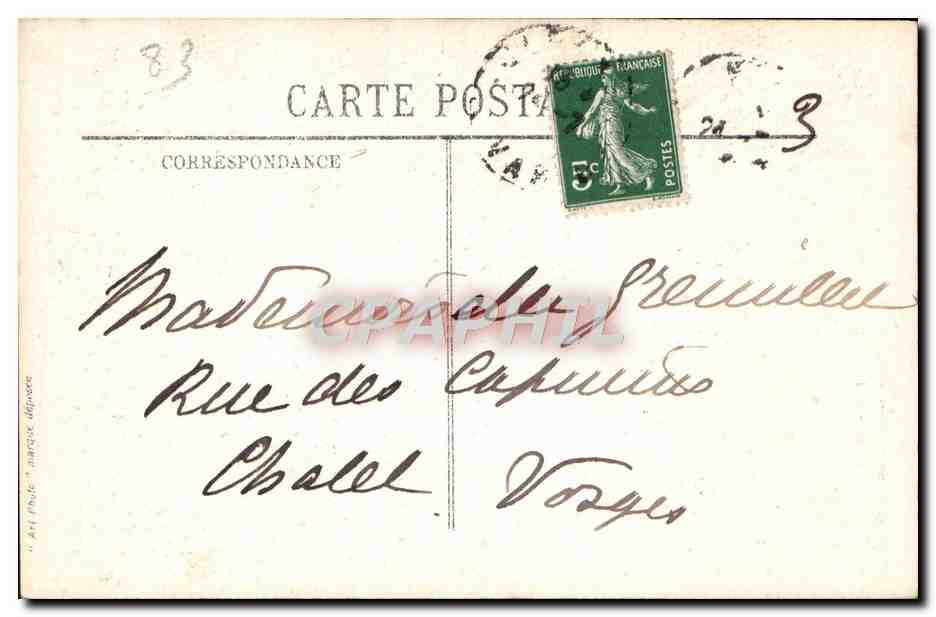 83
CARTE POSTA
RÉPUBLIQUE FRANÇAISE
POSTES
5c
3
CORRESPONDANCE
CPAPHIL
Mademoiselle
Rue des Capucins
Chalel Vosges
" Art Photo " marque déposée